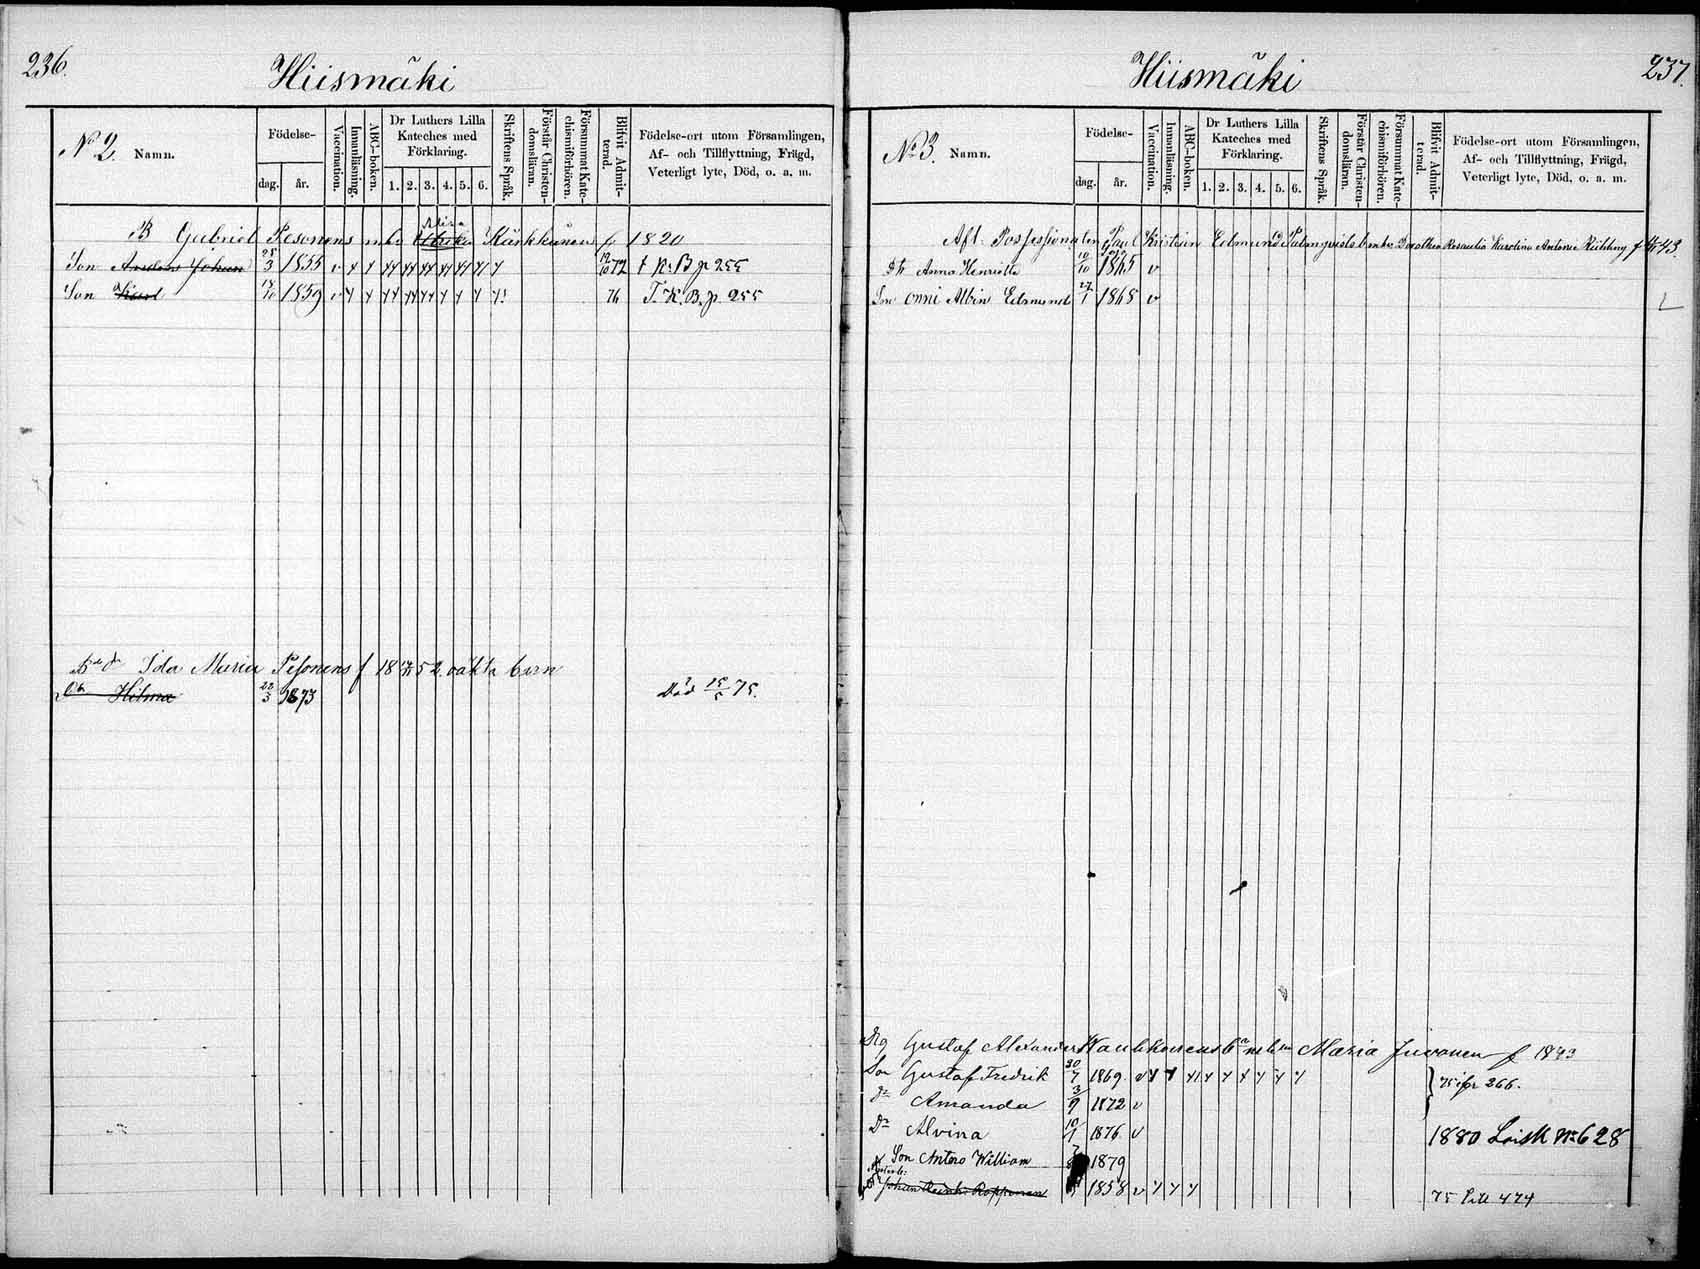 236.
Hiismäki
No 2. Namn.
Födelse-
dag. år.
Vaccination.
Innanläsning.
ABC-boken.
Dr Luthers Lilla Kateches med Förklaring.
1. 2. 3. 4. 5. 6.
Skriftens Språk.
Förstår Christendomsläran.
Försummat Katechismiförhören.
Blifvit Admitterad.
Födelse-ort utom Församlingen, Af- och Tillflyttning, Frägd, Veterligt lyte, Död, o. a. m.
B Gabriel Pesonens enka Ulrika Kärkkäinen f 1820
Son Anders Johan 25/3 1855 v 72 t K. B. p 255
Son Karl 1859 v 76 T. K. B. p 255
Ida Maria Pesonens f 18 52 oäkta barn
Dr Hilma 22/3 1873 Död 25/5 75.
237.
Hiismäki
No 3. Namn.
Födelse-
dag. år.
Vaccination.
Innanläsning.
ABC-boken.
Dr Luthers Lilla Kateches med Förklaring.
1. 2. 3. 4. 5. 6.
Skriftens Språk.
Förstår Christendomsläran.
Försummat Katechismiförhören.
Blifvit Admitterad.
Födelse-ort utom Församlingen, Af- och Tillflyttning, Frägd, Veterligt lyte, Död, o. a. m.
Aft. Possessionaten Paul Kristian Edmund Palmqvists enka Dorothea Rosaulia Karolina Antonia f 43.
Dr Anna Henriette 10/10 1865 v
Son Onni Albin Edmund 27/1 1868 v
Gustaf Alexander Maria Juvonen f 1843
Son Gustaf Fredrik 30/7 1869 v 75 fr 266.
Dr Amanda 3/9 1872 v
Dr Alvina 10/1 1876 v 1880 No 628
Son Antero William 1879
Johan Ropponen 1858 v 75 till 474